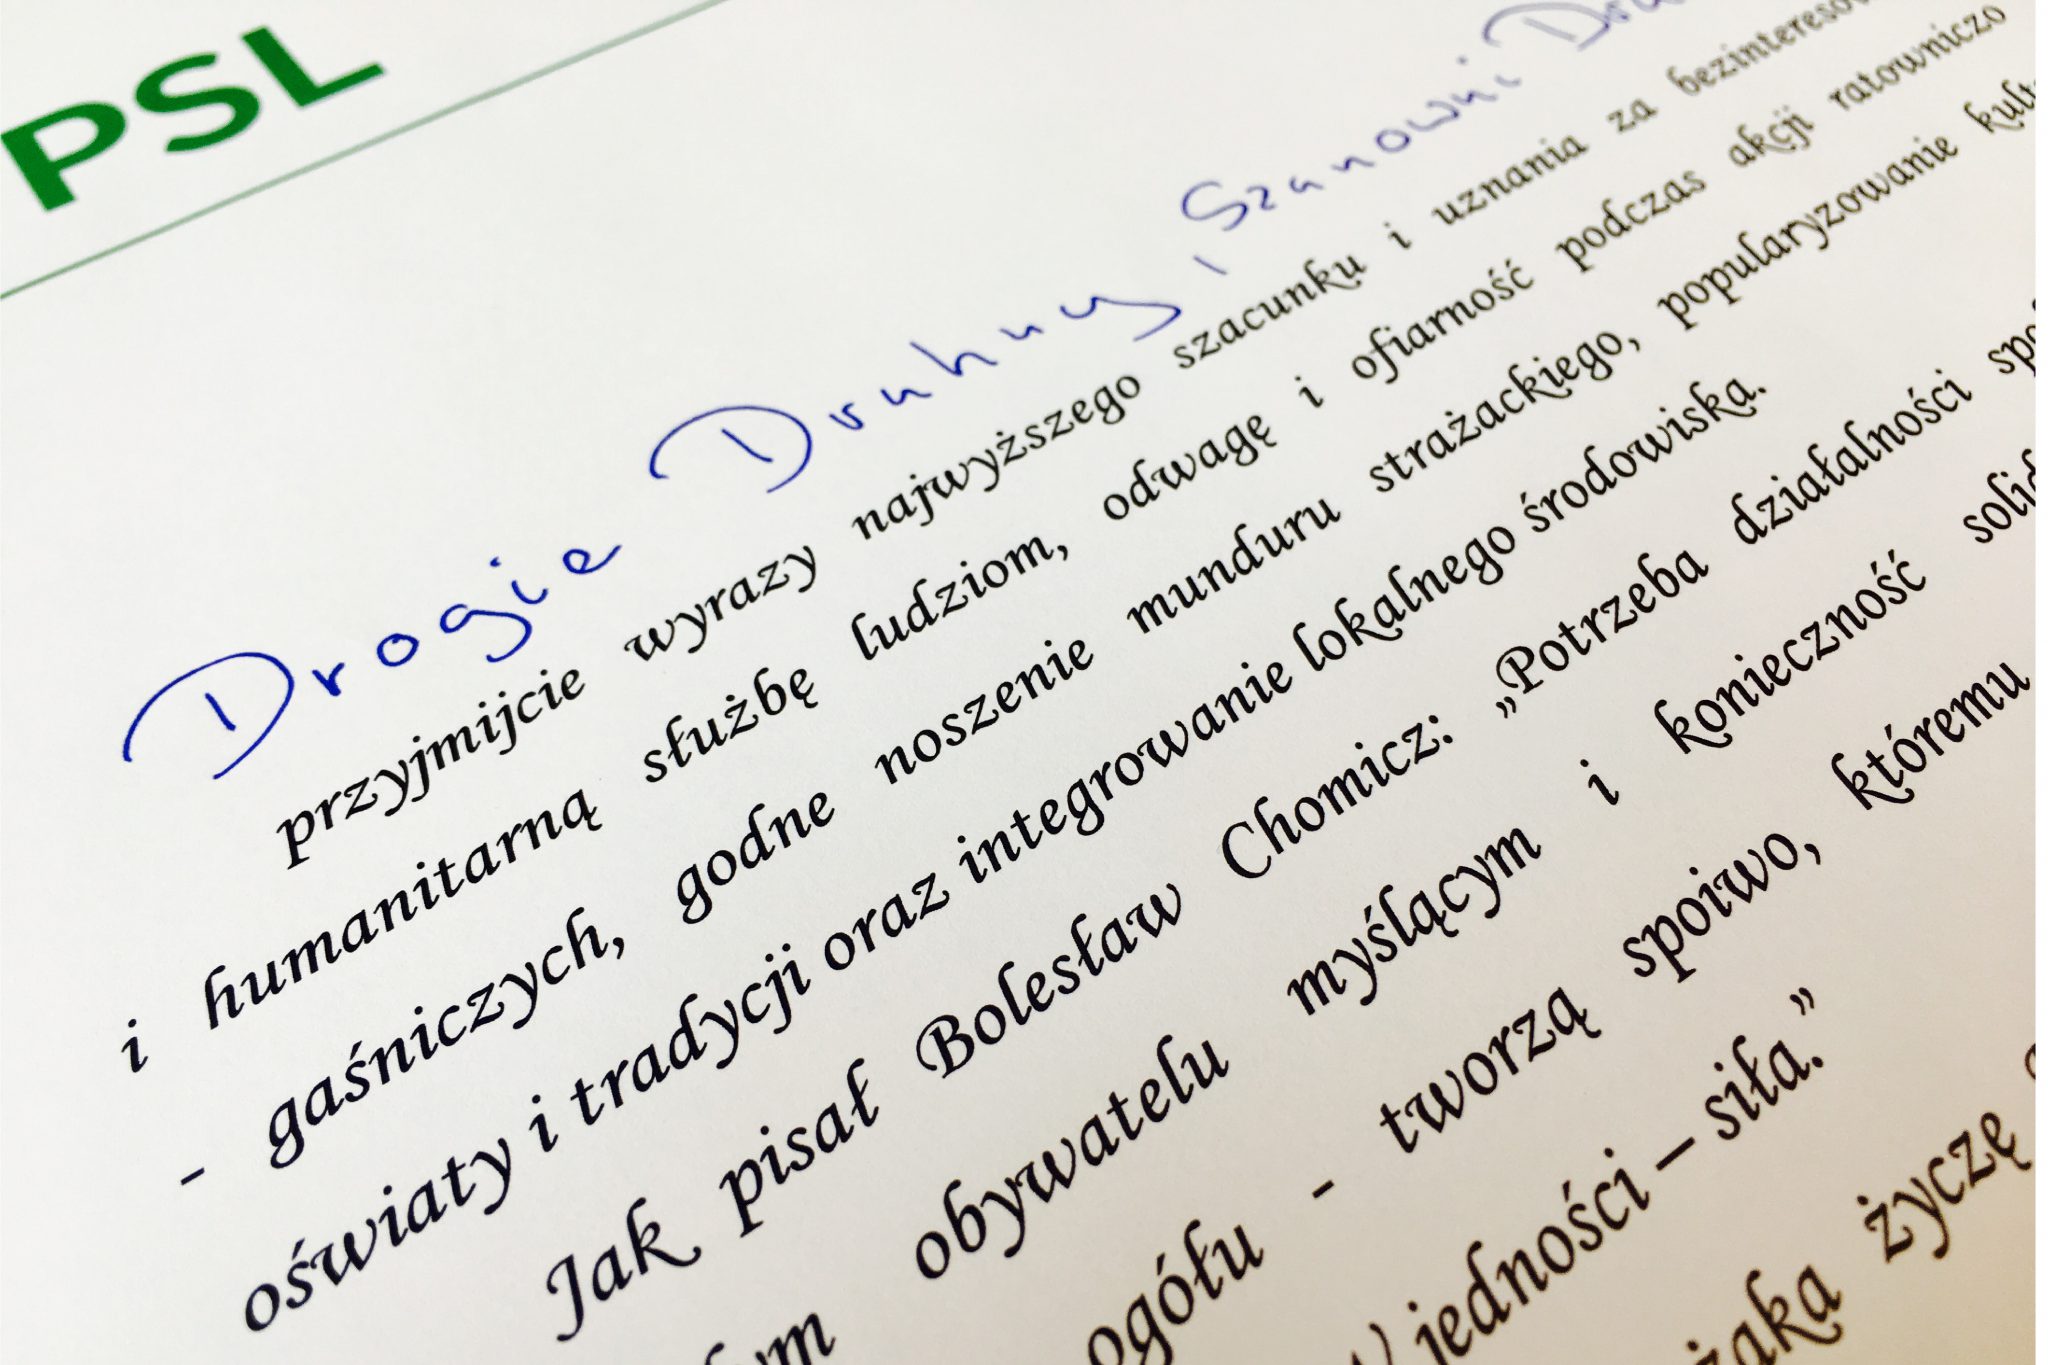 PSL
Drogie Druhny, Szanowni
przyjmijcie wyrazy najwyższego szacunku i uznania za
i humanitarną służbę ludziom, odwagę i ofiarność podczas akcji ratowniczo
- gaśniczych, godne noszenie munduru strażackiego, popularyzowanie
oświaty i tradycji oraz integrowanie lokalnego środowiska.
Jak pisał Bolesław Chomicz: „Potrzeba działalności
obywatelu myślącym i konieczność
ogółu - tworzą spoiwo, któremu
W jedności – siła.”
życzę